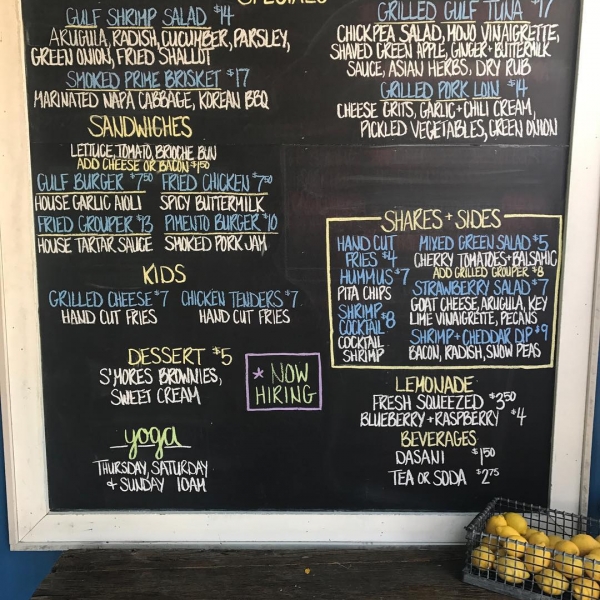 SPECIALS
GULF SHRIMP SALAD $14
ARUGULA, RADISH, CUCUMBER, PARSLEY,
GREEN ONION, FRIED SHALLOT
SMOKED PRIME BRISKET $17
MARINATED NAPA CABBAGE, KOREAN BBQ
GRILLED GULF TUNA $17
CHICKPEA SALAD, MOJO VINAIGRETTE,
SHAVED GREEN APPLE, GINGER + BUTTERMILK
SAUCE, ASIAN HERBS, DRY RUB
GRILLED PORK LOIN $14
CHEESE GRITS, GARLIC + CHILI CREAM,
PICKLED VEGETABLES, GREEN ONION
SANDWICHES
LETTUCE, TOMATO, BRIOCHE BUN
ADD CHEESE OR BACON $1.50
GULF BURGER $7.50 FRIED CHICKEN $7.50
HOUSE GARLIC AIOLI SPICY BUTTERMILK
FRIED GROUPER $13 PIMENTO BURGER $10
HOUSE TARTAR SAUCE SMOKED PORK JAM
KIDS
GRILLED CHEESE $7 CHICKEN TENDERS $7
HAND CUT FRIES HAND CUT FRIES
DESSERT $5
S'MORES BROWNIES,
SWEET CREAM
* NOW
HIRING
yoga
THURSDAY, SATURDAY
+ SUNDAY 10AM
SHARES + SIDES
HAND CUT
FRIES $4
HUMMUS $7
PITA CHIPS
SHRIMP
COCKTAIL $8
COCKTAIL
SHRIMP
MIXED GREEN SALAD $5
CHERRY TOMATOES + BALSAMIC
ADD GRILLED GROUPER $8
STRAWBERRY SALAD $7
GOAT CHEESE, ARUGULA, KEY
LIME VINAIGRETTE, PECANS
SHRIMP + CHEDDAR DIP $9
BACON, RADISH, SNOW PEAS
LEMONADE
FRESH SQUEEZED $3.50
BLUEBERRY + RASPBERRY $4
BEVERAGES
DASANI $1.50
TEA OR SODA $2.75